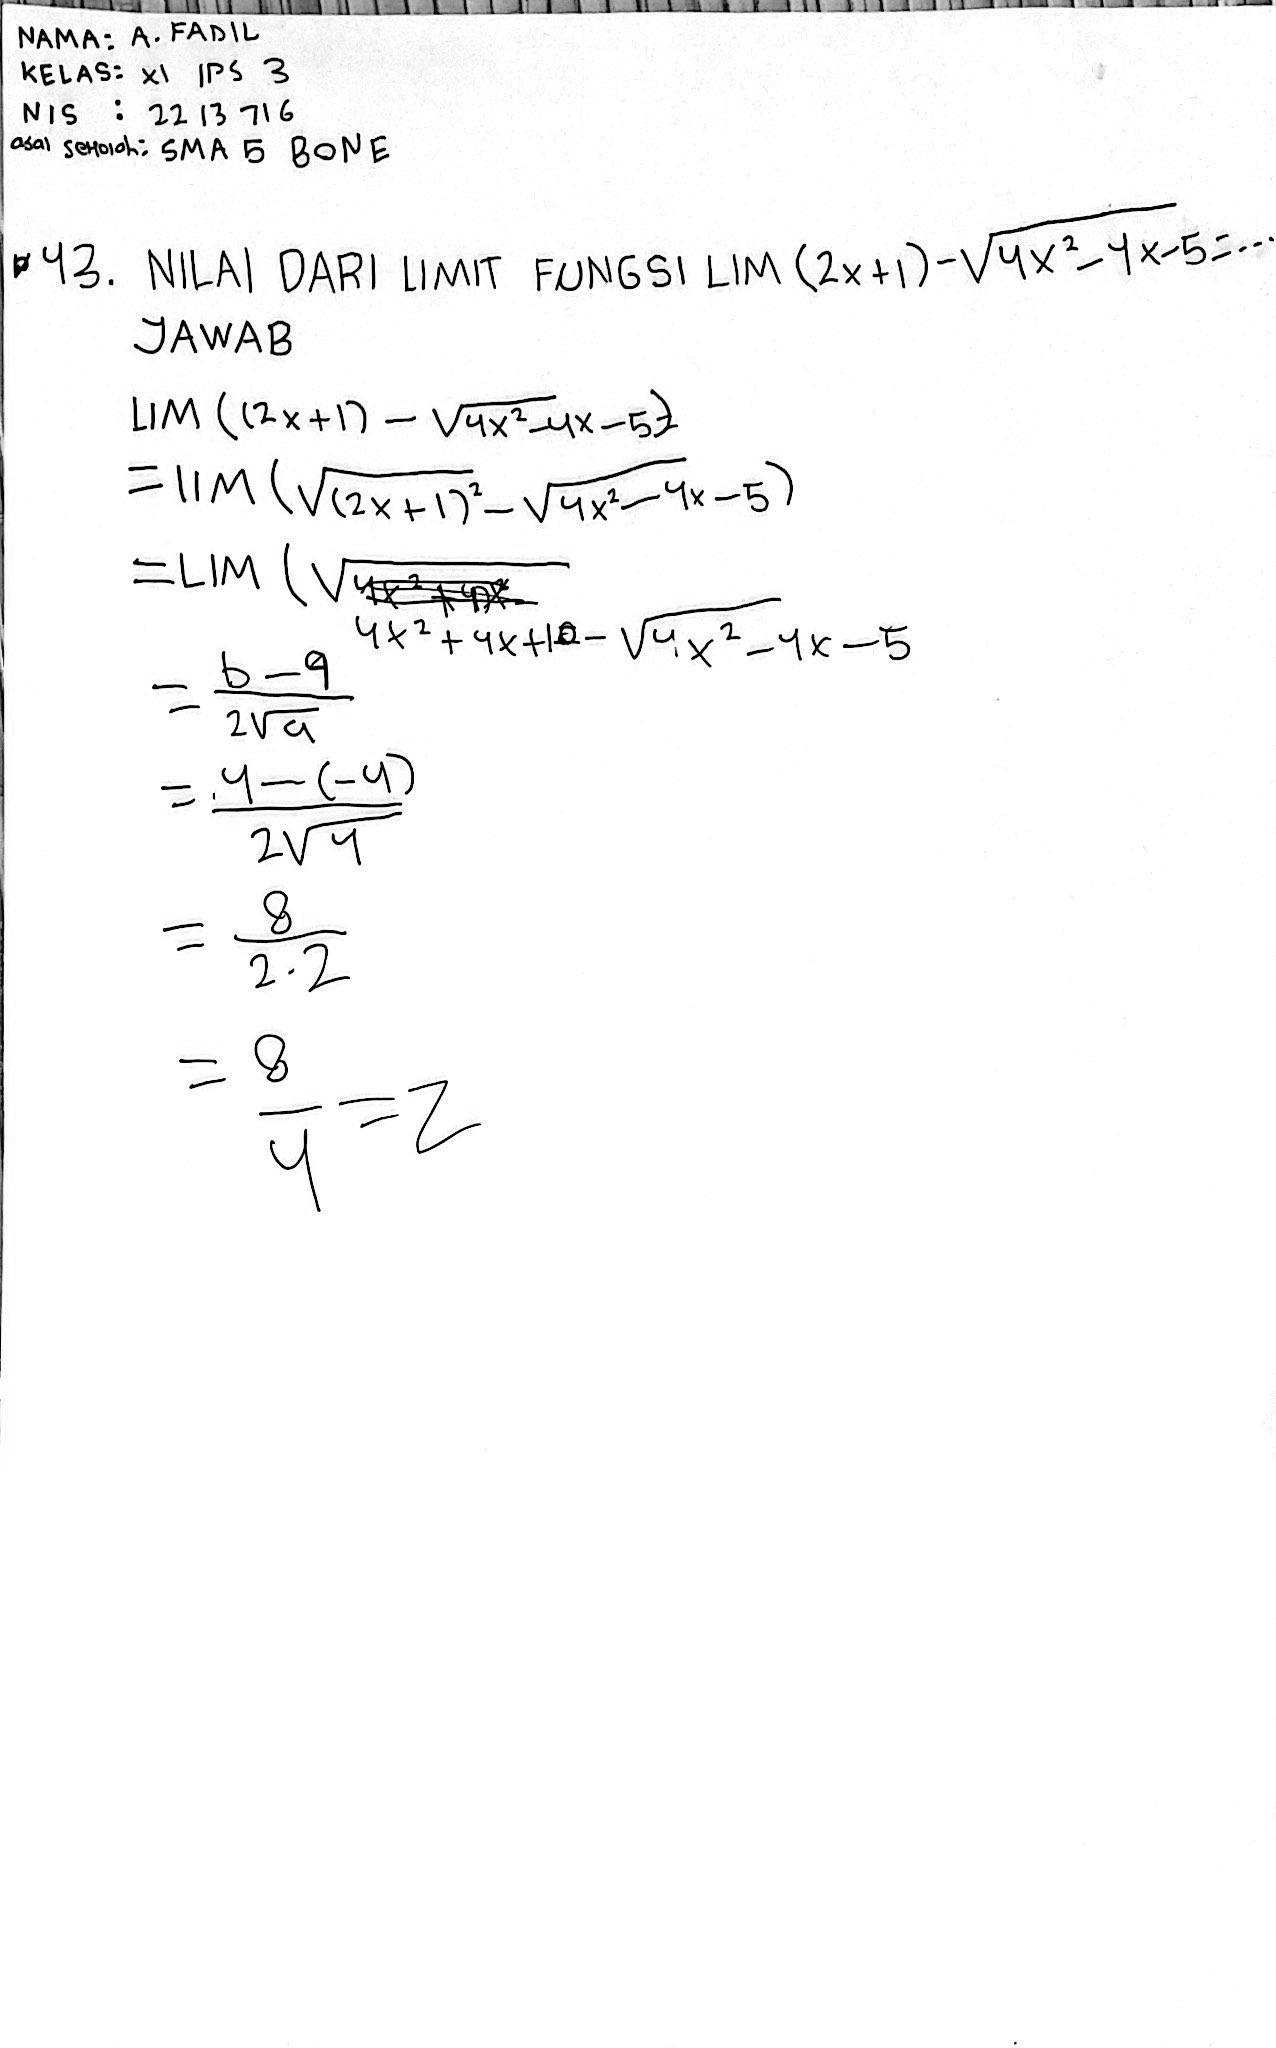 NAMA: A. FADIL
KELAS: XI IPS 3
NIS : 22 13 716
asal sekolah: SMA 5 BONE
43. NILAI DARI LIMIT FUNGSI LIM (2x+1)-√4x²-4x-5=...
JAWAB
LIM ((2x+1) - √4x²-4x-5)
=lIM (√(2x+1)² - √4x²-4x-5)
=LIM (√
4x²+4x+10 - √4x²-4x-5
= b-q
2√a
= 4-(-4)
2√4
= 8
2.2
= 8
4 = 2